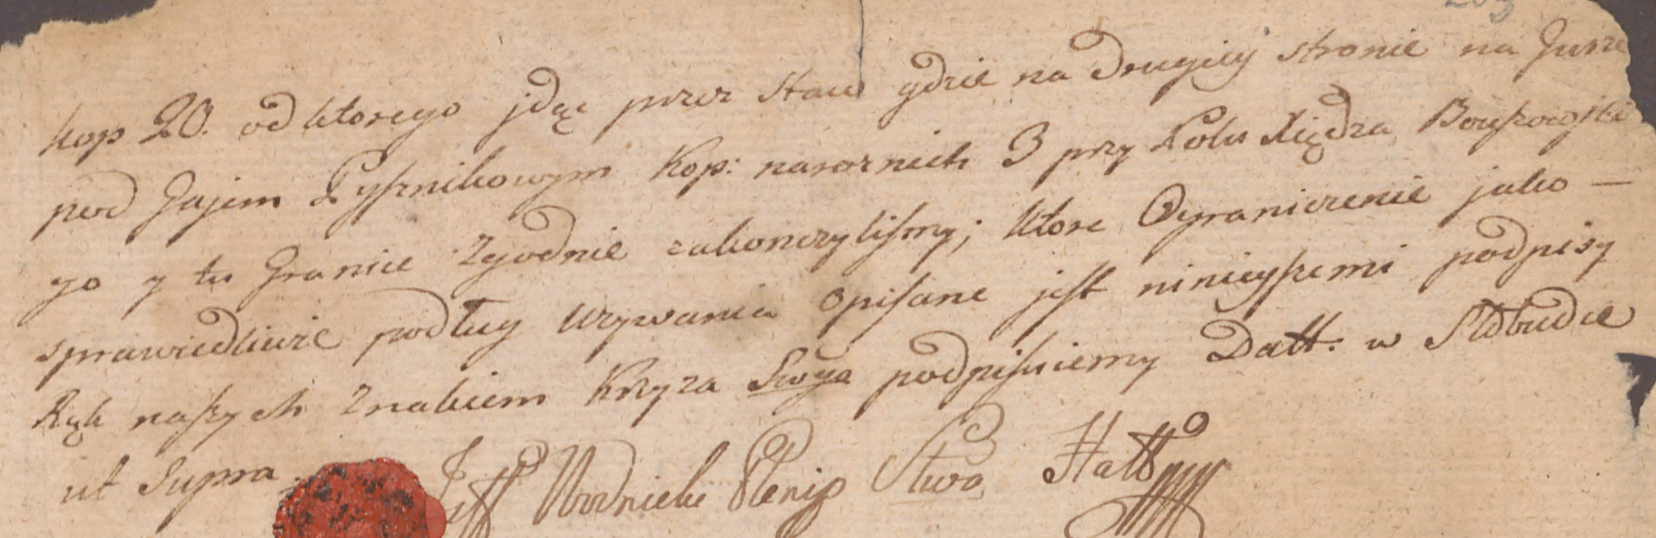 kop 20. od ktorego jdąc przez Staw gdzie na Drugiey stronie na Gurze
pod Gajem Łysznikowym Kop: naroznich 3 przy Polu Xiędza
go y tu Granice Zgodnie zakonczylismy; Ktore Ograniczenie jako —
sprawiedliwie podług Uzywania opisane jest ninieyszemi podpisy
Rąk naszych Znakiem Krzyza Swgo podpisuiemy Datt. w Słobudce
ut Supra
Wodnicki Plenip